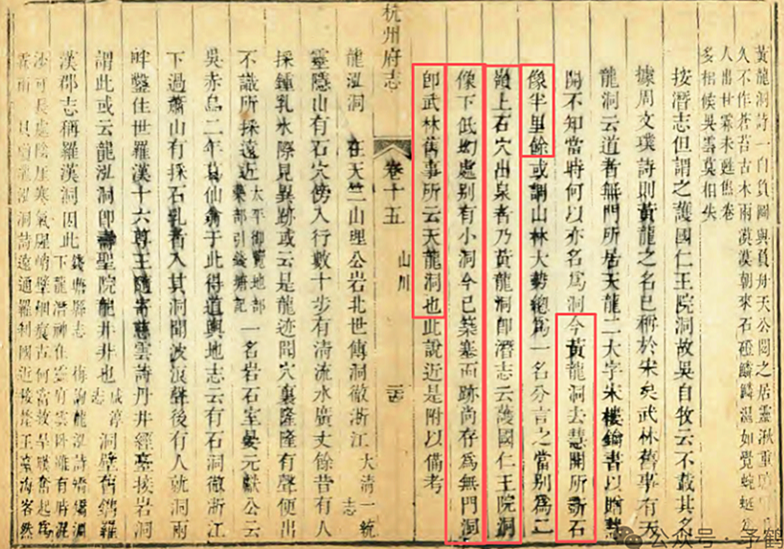 黃龍洞詩一自負圖與負舟天公閟之居靈湫重
久不作蒼苔古木雨漠漠朝來石磴鱗鱗濕如覺蜿蜒
人出世霖未甦焦卷
多招候吳雩莫相失
按潛志但謂之護國仁王院洞故吳自牧云不載其名
據周文璞詩則黃龍之名已稱於宋矣武林舊事有天
龍洞云道者無門所居天龍二大字宋樓鑰書以贈慧
開不知當時何以亦名爲洞今黃龍洞去慧開所斲石
像半里餘或謂山林大勢總爲一名分言之當別爲二
嶺上石穴出泉者乃黃龍洞卽潛志云護國仁王院洞
像下低幽處別有小洞今已築塞而跡尚存爲無門洞
卽武林舊事所云天龍洞也此說近是附以備考
杭州府志 卷十五 山川
龍泓洞 在天竺山理公岩北世傳洞徹浙江 大清一統志
靈隱山有石穴傍入行數十步有清流水廣丈餘昔有人
採鍾乳水際見異跡或云是龍迹聞穴裏隆隆有聲便出
不識所採遠近 太平御覽地部 引錢塘記 一名岩石室晏元獻公云
吳赤烏二年葛仙翁于此得道輿地志云有石洞徹浙江
下過蕭山有採石乳者入其洞聞波浪聲後有人就洞兩
畔鑿住世羅漢十六尊王隨寄慈雲詩丹井經臺接岩洞
謂此或云龍泓洞卽壽聖院龍井井也 咸淳志 洞壁舊鐫羅
漢郡志稱羅漢洞因此 錢塘縣志
公众号·子鹤